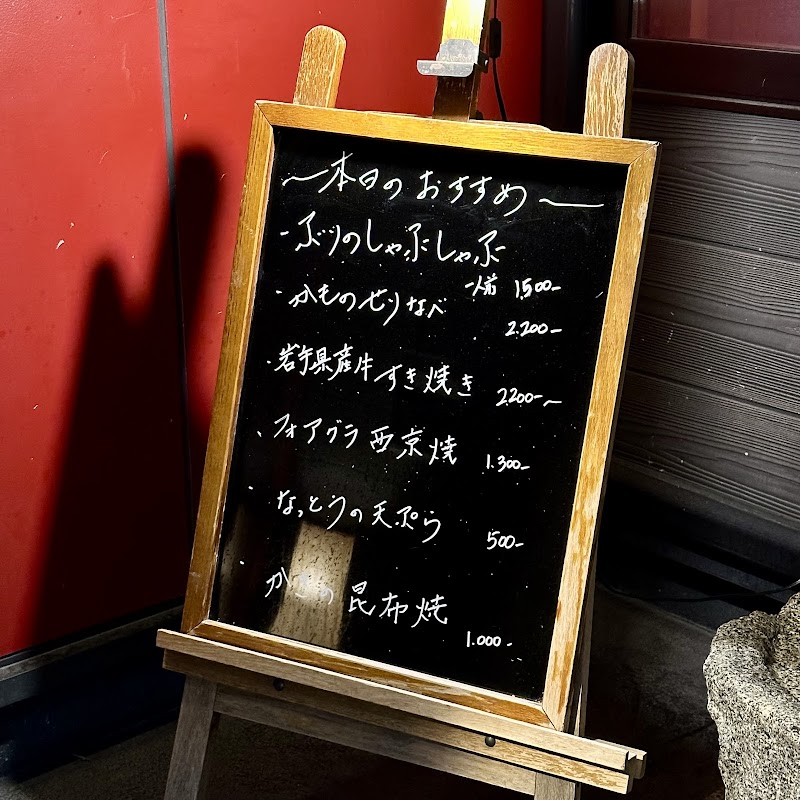 〜本日のおすすめ〜
・ぶりのしゃぶしゃぶ
一人前 1,500-
・かものせりなべ
2.200-
・岩手県産牛すき焼き
2200-〜
・フォアグラ西京焼
1.300-
・なっとうの天ぷら
500-
・かきの昆布焼
1.000-